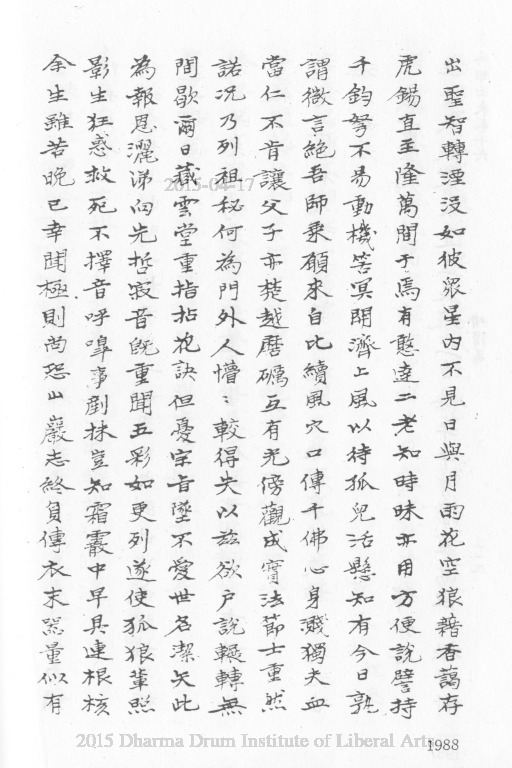 出聖智轉湮沒如彼眾星內不見日與月雨花空狼藉香藹存
虎錫直至隆萬間于焉有憨達二老知時昧亦用方便說譬持
千鈞弩不易動機筈冥開濟上風以待狐兒活懸知有今日孰
謂微言絕吾師乘願來自比續風穴口傳千佛心身濺獨夫血
當仁不肯讓父子亦楚越磨礪互有光傍觀成寶法節士重然
諾況乃列祖秘何為門外人懵〻較得失以茲欲戶說輾轉無
間歇爾日蔵雲堂重指拈花訣但憂宗旨墜不愛世名潔矢此
為報恩灑涕向先哲寂音既重聞五彩如更列遂使狐狼輩照
影生狂惑救死不擇音呼嘷事剷抹豈知霜霰中早具連根核
余生雖苦晚已幸聞極則尚恐山巖志終負傳衣末器量似有
2015-04-17
2015 Dharma Drum Institute of Liberal Arts
1988